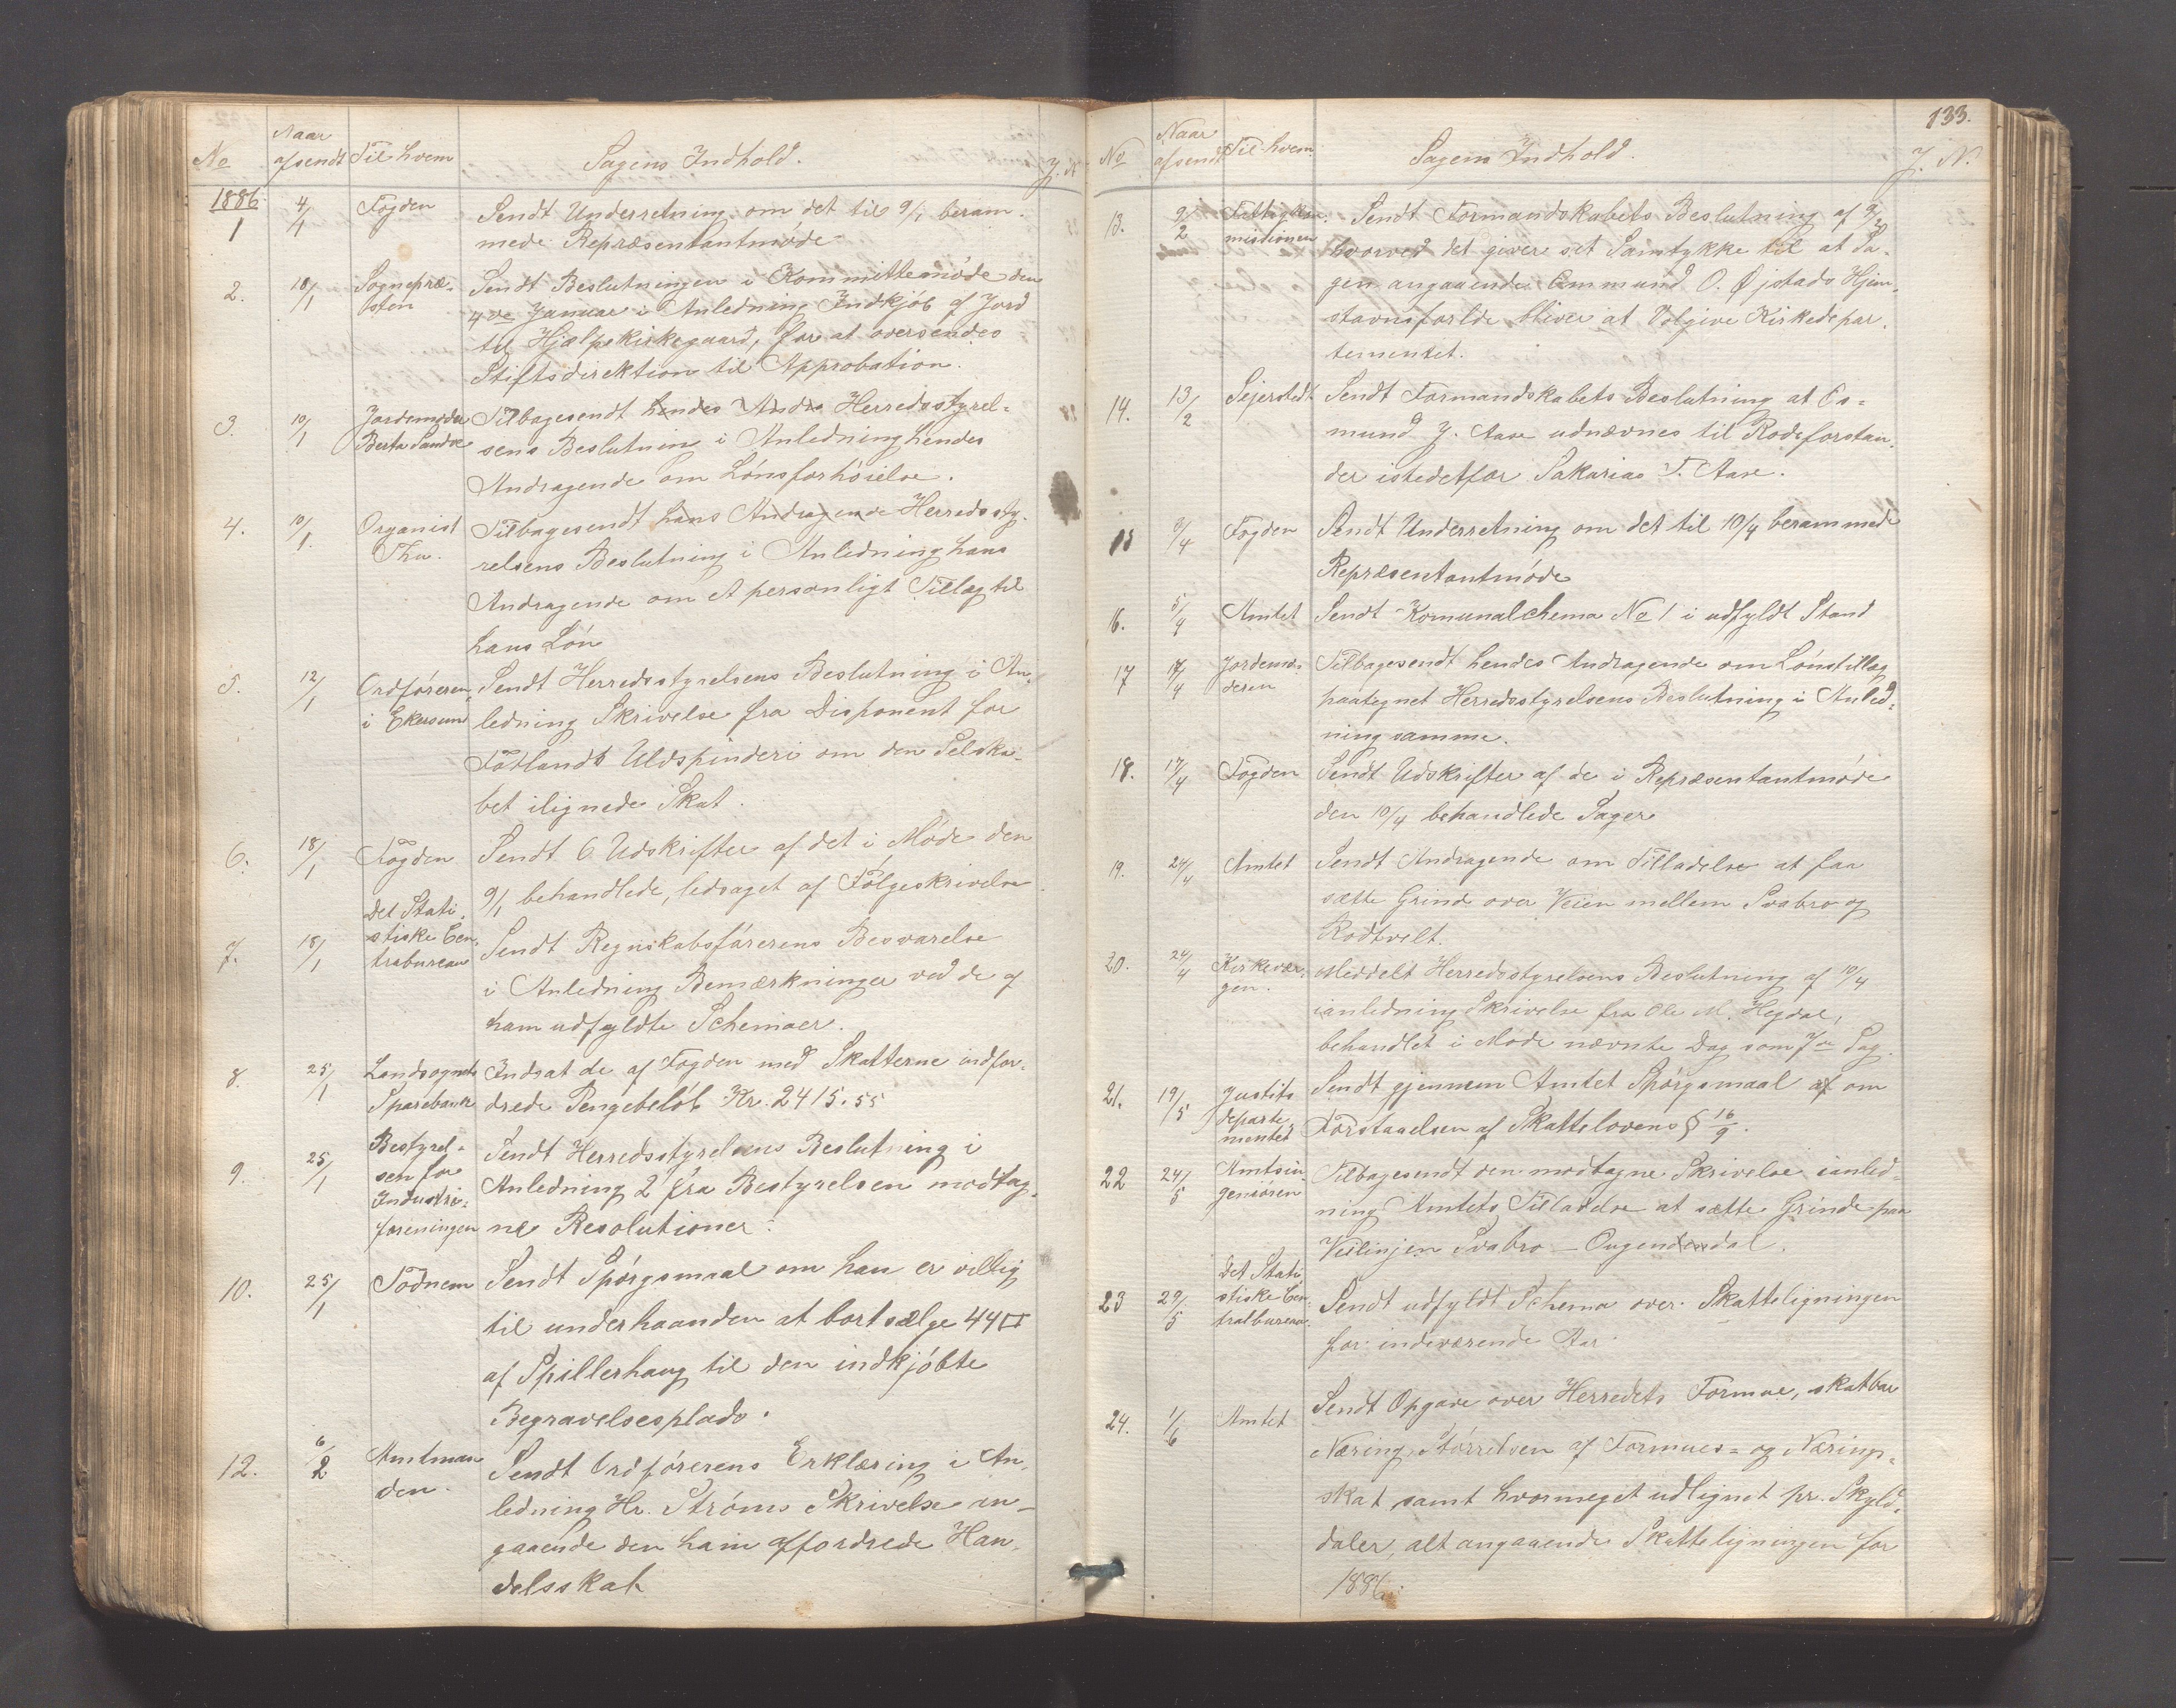 No Naar afsendt Til hvem Sagens Indhold. J. N
1886
1 4/1 Fogden Sendt Underretning om det til 9/1 beram-
mede Repræsentantmøde
2. 10/1 Sognepræ- Sendt Beslutningen i Kommittemøde den
sten 4de Januar i Anledning Indkjøb af Jord
til Hjælpekirkegaard, for at oversendes
Stiftsdirektion til Approbation.
3. 10/1 Jordemoder Tilbagesendt hendes Andra Herredsstyrel-
Berta Sandve sens Beslutning i Anledning hendes
Andragende om Lønsforhøielse.
4. 10/1. Organist Tilbagesendt hans Andragende Herredssty-
Thu. relsens Beslutning i Anledning hans
Andragende om et personligt Tillæg til
hans Løn
5. 12/1 Ordføreren Sendt Herredsstyrelsens Beslutning i An-
i Ekersund ledning Skrivelse fra Disponent for
Fotlandts Uldspinderi om den Selska-
bet ilignede Skat.
6. 18/1 Fogden Sendt 6 Udskrifter af det i Møde den
9/1 behandlede, ledsaget af Følgeskrivelse
7. 18/1 Det Stati-
stiske Cen- Sendt Regnskabsførerens Besvarelse
trabureau
i Anledning Bemærkninger ved de af
ham udfyldte Schemaer.
8. 25/1 Landsognets Indsat de af Fogden med Skatterne indfor-
Sparebank drede Pengebeløb Kr. 2415.55
9. 25/1 Bestyrel- Sendt Herredsstyrelsens Beslutning i
sen for Anledning 2 fra Bestyrelsen modtag-
Industri-
foreningen ne Resolutioner.
10. 25/1 Todnem Sendt Spørgsmaal om han er villig
til underhaanden at bortsælge 44 □
af Spillerhaug til den indkjøbte
Begravelsesplads.
12. 6/2 Amtman- Sendt Ordførerens Erklæring i An-
den. ledning Hr. Strøms Skrivelse an-
gaaende den ham affordrede Han-
delsskat
133.
No Naar afsendt Til hvem. Sagens Indhold. J. N.
13. 9/2 Fattigkom- Sendt Formandskabets Beslutning af
missionen hvorved det giver sit Samtykke til at Sa-
gen angaaende Ommund O. Øjstads Hjem-
stavnsforhold bliver at Kirkedepar-
tementet.
14. 13/2 Sejerstedt Sendt Formandskabets Beslutning at Os-
mund J. Aase udnævnes til Rodeforstan-
der istedetfor Sakarias T. Aase.
15 9/4 Fogden Sendt Underretning om det til 10/4 berammede
Repræsentantmøde
16. 5/4 Amtet Sendt Komunalchema No 1 i udfyldt Stand
17 17/4 Jordemo- Tilbagesendt hendes Andragende om Lønstillæg
deren paategnet Herredsstyrelsens Beslutning i Anled-
ning samme.
18. 17/4 Fogden Sendt Udskrifter af de i Repræsentantmøde
den 10/4 behandlede Sager
19. 24/4 Amtet Sendt Andragende om Tilladelse at faa
sætte Grind over Veien mellem Svabro og
Rodtvelt.
20. 24/4 Kirkevær- Meddelt Herredsstyrelsens Beslutning af 10/4
gen. ianledning Skrivelse fra Ole M. Hegdal,
behandlet i Møde nævnte Dag som 7de Sag.
21. 19/5 Justits Sendt gjennem Amtet Spørgsmaal af om
departe- Forstaaelsen af Skattelovens § 16/9.
mentet
22 24/5 Amtsin- Tilbagesendt den modtagne Skrivelse ianled-
geniøren ning Amtets Tilladelse at sætte Grinde paa
Veilinjen Svabro – Ougendendal.
23 29/5 Det Stati-
stiske Cen- Sendt udfyldt Schema over Skatteligningen
tralbureau. for indeværende Aar.
24. 1/6 Amtet Sendt Opgave over Herredets Formue, skatbar
Næring, Størrelsen af Formues- og Nærings-
skat samt hvormeget udlignet pr. Skyld-
daler, alt angaaende Skatteligningen for
1886.